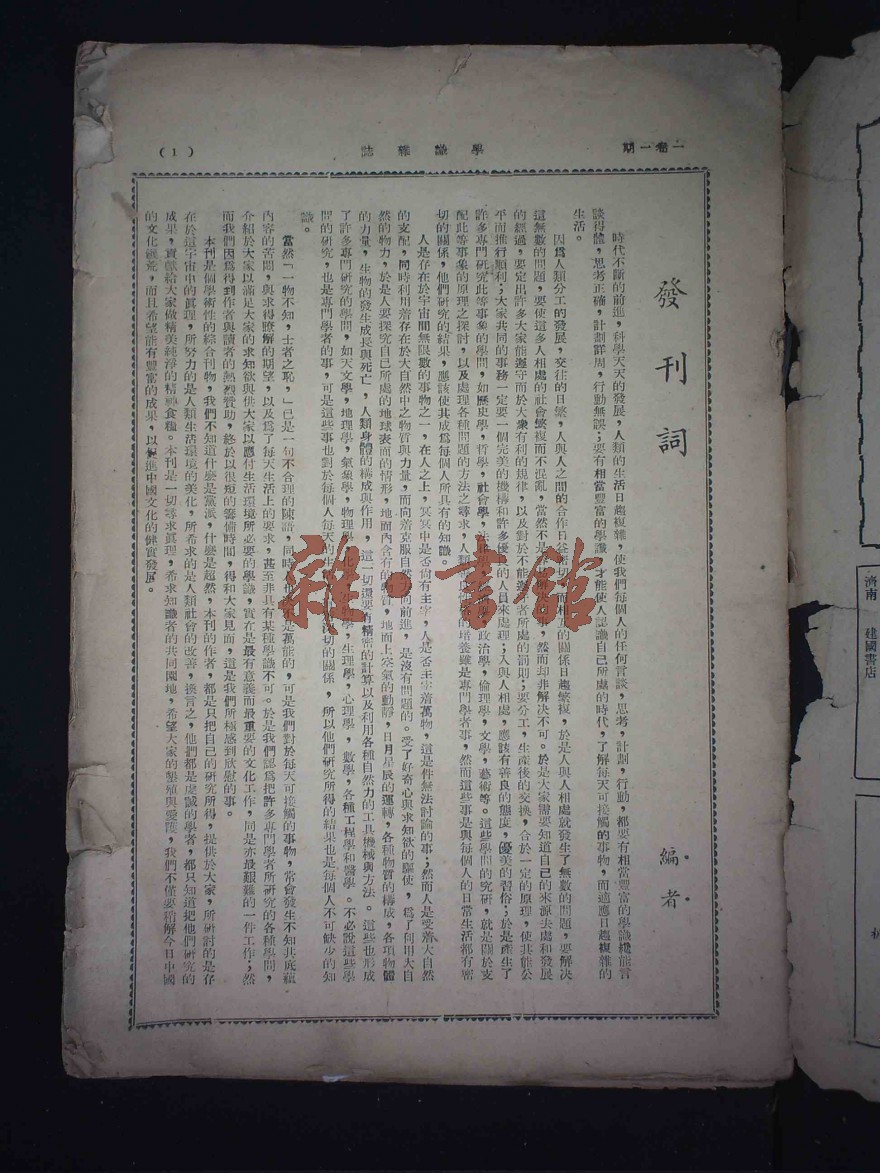 期一卷一
學識雜誌
(1)
發刊詞
編者
時代不斷的前進，科學天天的發展，人類的生活日趨複雜，使我們每個人的任何言談，思考，計劃，行動，都要有相當豐富的學識纔能言
談得體，思考正確，計劃詳周，行動無誤；要有相當豐富的學識，才能使人認識自己所處的時代，了解每天可接觸的事物，而適應日趨複雜的
生活。
因爲人類分工的發展，交往的日繁，人與人之間的合作日益密切，而相互的關係日趨繁複，於是人與人相處就發生了無數的問題，要解決
這無數的問題，要使這多人相處的社會繁複而不混亂，當然不是，然而却非解決不可。於是大家需要知道自己的來源去處和發展
的經過，要定出許多大家能遵守而於大衆有利的規律，以及對於不能遵守者所處的罰則；要分工，生產後的交換，合於一定的原理，使其能公
平而推行順利；大家共同的事務一定要一個完美的機構和許多優的人員來處理；人與人相處，應該有善良的態度，優美的習俗；於是產生了
許多專門研究此等事象的學問，如歷史學，哲學，社會學，法政治學，倫理學，文學，藝術等。這些學問的究研，就是關於支
配此等事象的原理之探討，以及處理各種問題的方法之尋求，人類的培養雖是專門學者事，然而這些事是與每個人的日常生活都有密
切的關係，他們研究的結果，應該使其成爲每個人所具有的知識。
人是存在於宇宙間無限數的事物之一，在人之上，冥冥中是否尙有主宰，人是否主宰着萬物，這是件無法討論的事；然而人是受着大自然
的支配，同時利用着存在於大自然中之物質與力量，而向着克服自然方向前進，是沒有問題的。受了好奇心與求知欲的驅使，爲了利用大自
然的物力，於是人要探究自己所處的地球表面的情形，地面內含有的物質，地面上空氣的動靜，日月星辰的運轉，各種物質的構成，各項物體
的力量，生物的發生成長與死亡，人類身體的構成與作用，這一切還要有精密的計算以及利用各種自然力的工具機械與方法。這些也形成
了許多專門研究的學問，如天文學，地理學，氣象學，物理學，化學，生理學，心理學，數學，各種工程學和醫學。不必說這些學
問的研究，也是專門學者的事，可是這些事也對於每個人每天的生切的關係，所以他們研究所得的結果也是每個人不可缺少的知
識。
當然「一物不知，士者之恥，」已是一句不合理的陳語，同時是萬能的，可是我們對於每天可接觸的事物，常會發生不知其底蘊
內容的苦悶，與求得瞭解的期望，以及爲了每天生活上的要求，甚至非具有某種學識不可。於是我們認爲把許多專門學者所研究的各種學問，
介紹於大家以滿足大家的求知欲與供大家以應付生活環境所必要的學識，實在是最有意義而最重要的文化工作，同是亦最艱難的一件工作；然
而我們因爲得到作者與讀者的熱烈贊助，終於以很短的籌備時間，得和大家見面，這是我們所極感到欣慰的事。
本刊是個學術性的綜合刊物，我們不知道什麼是黨派，什麼是超然，本刊的作者，都是只把自己的研究所得，提供於大家，所研討的是存
在於這宇宙中的眞理，所努力的是人類生活環境的美化，所希求的是人類社會的改善，換言之，他們都是虔誠的學者，都只知道把他們研究的
成果，貢獻給大家做精美純淨的精神食糧。本刊是一切尋求眞理，希求知識者的共同園地，希望大家的墾殖與愛護，我們不僅要稍解今日中國
的文化饑荒，而且希望能有豐富的成果，以促進中國文化的健實發展。
雜·書館
濟南
建國書店